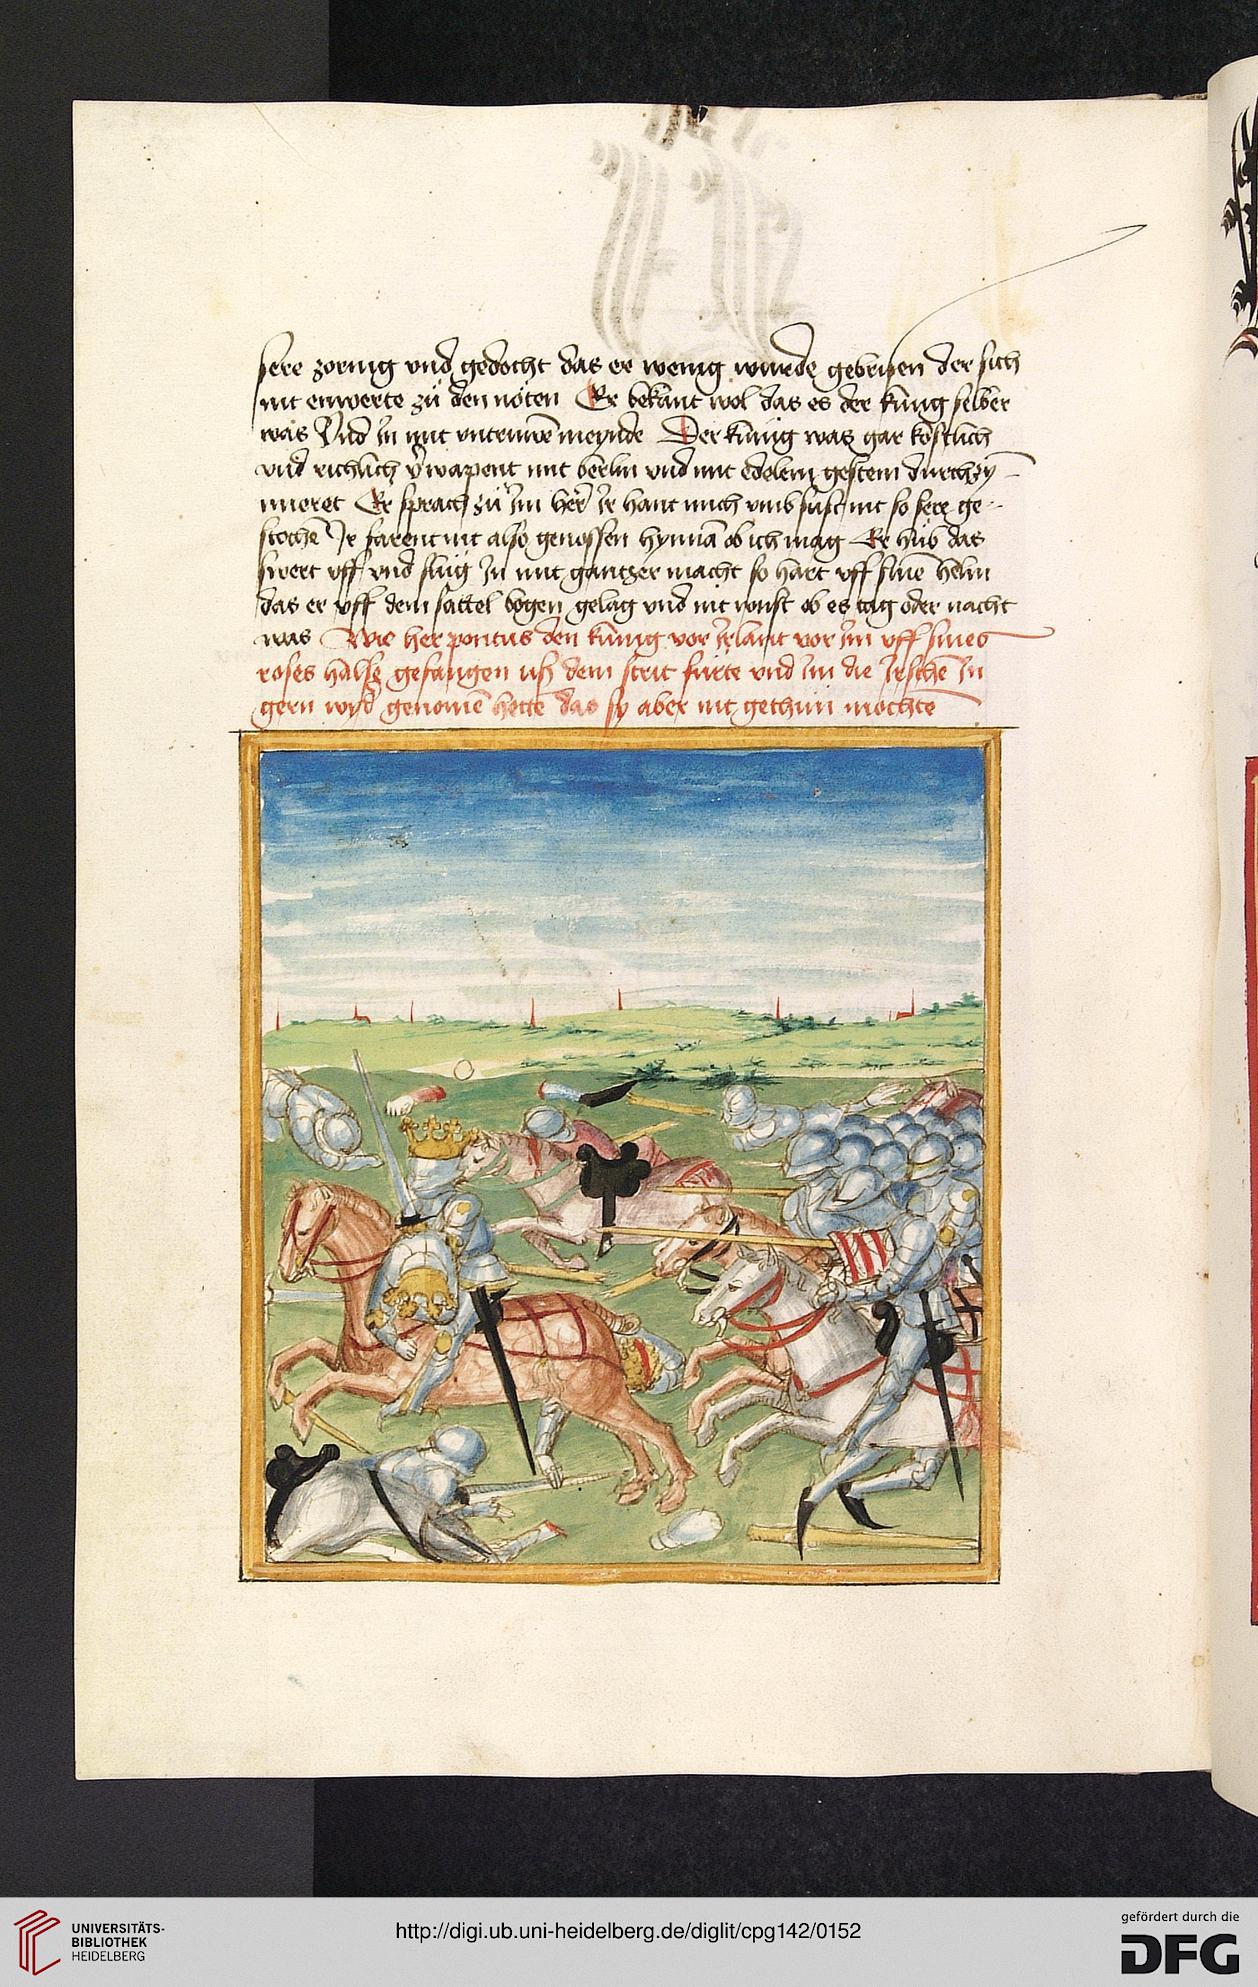 sere zornig vnd gedocht das er wenig wurde gebrysen der sich
nit enwerte zů den nöten Er bekant wol das es der kűnig selber
was Vnd In mit vntruwē meynde Der kűnig was gar köstlich
vnd richlich v̓wapent mit berlin vnd mit edelem gestein durchzy-
mieret Er sprach zů Im her̓ Ir hant mich vmb sust nit so sere ge-
stochē Ir farent nit also genossen hynnā ob ich mag Er hůb das
swert vff vnd slůg In mit gantzer macht so hart vff sinē helm
das er vff dem sattel bogen gelag vnd nit wust ob es tag oder nacht
was Wie her pontus den kűnig vor Irlant vor Im vff sines
roses halse gefangen uß dem strit fůrte vnd Im die Irschē In
gern wyd̓ genomē hette das sy aber nit gethun mochte
UNIVERSITÄTS-
BIBLIOTHEK
HEIDELBERG
http://digi.ub.uni-heidelberg.de/diglit/cpg142/0152
gefördert durch die
DFG